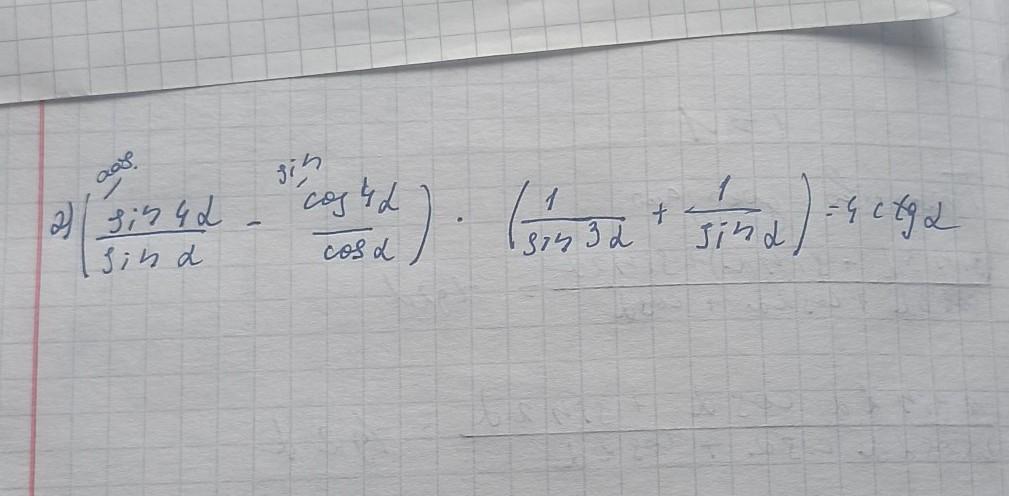 cos. sin
2) (sin 4α / sin α - cos 4α / cos α) · (1 / sin 3α + 1 / sin α) = 4 ctg α